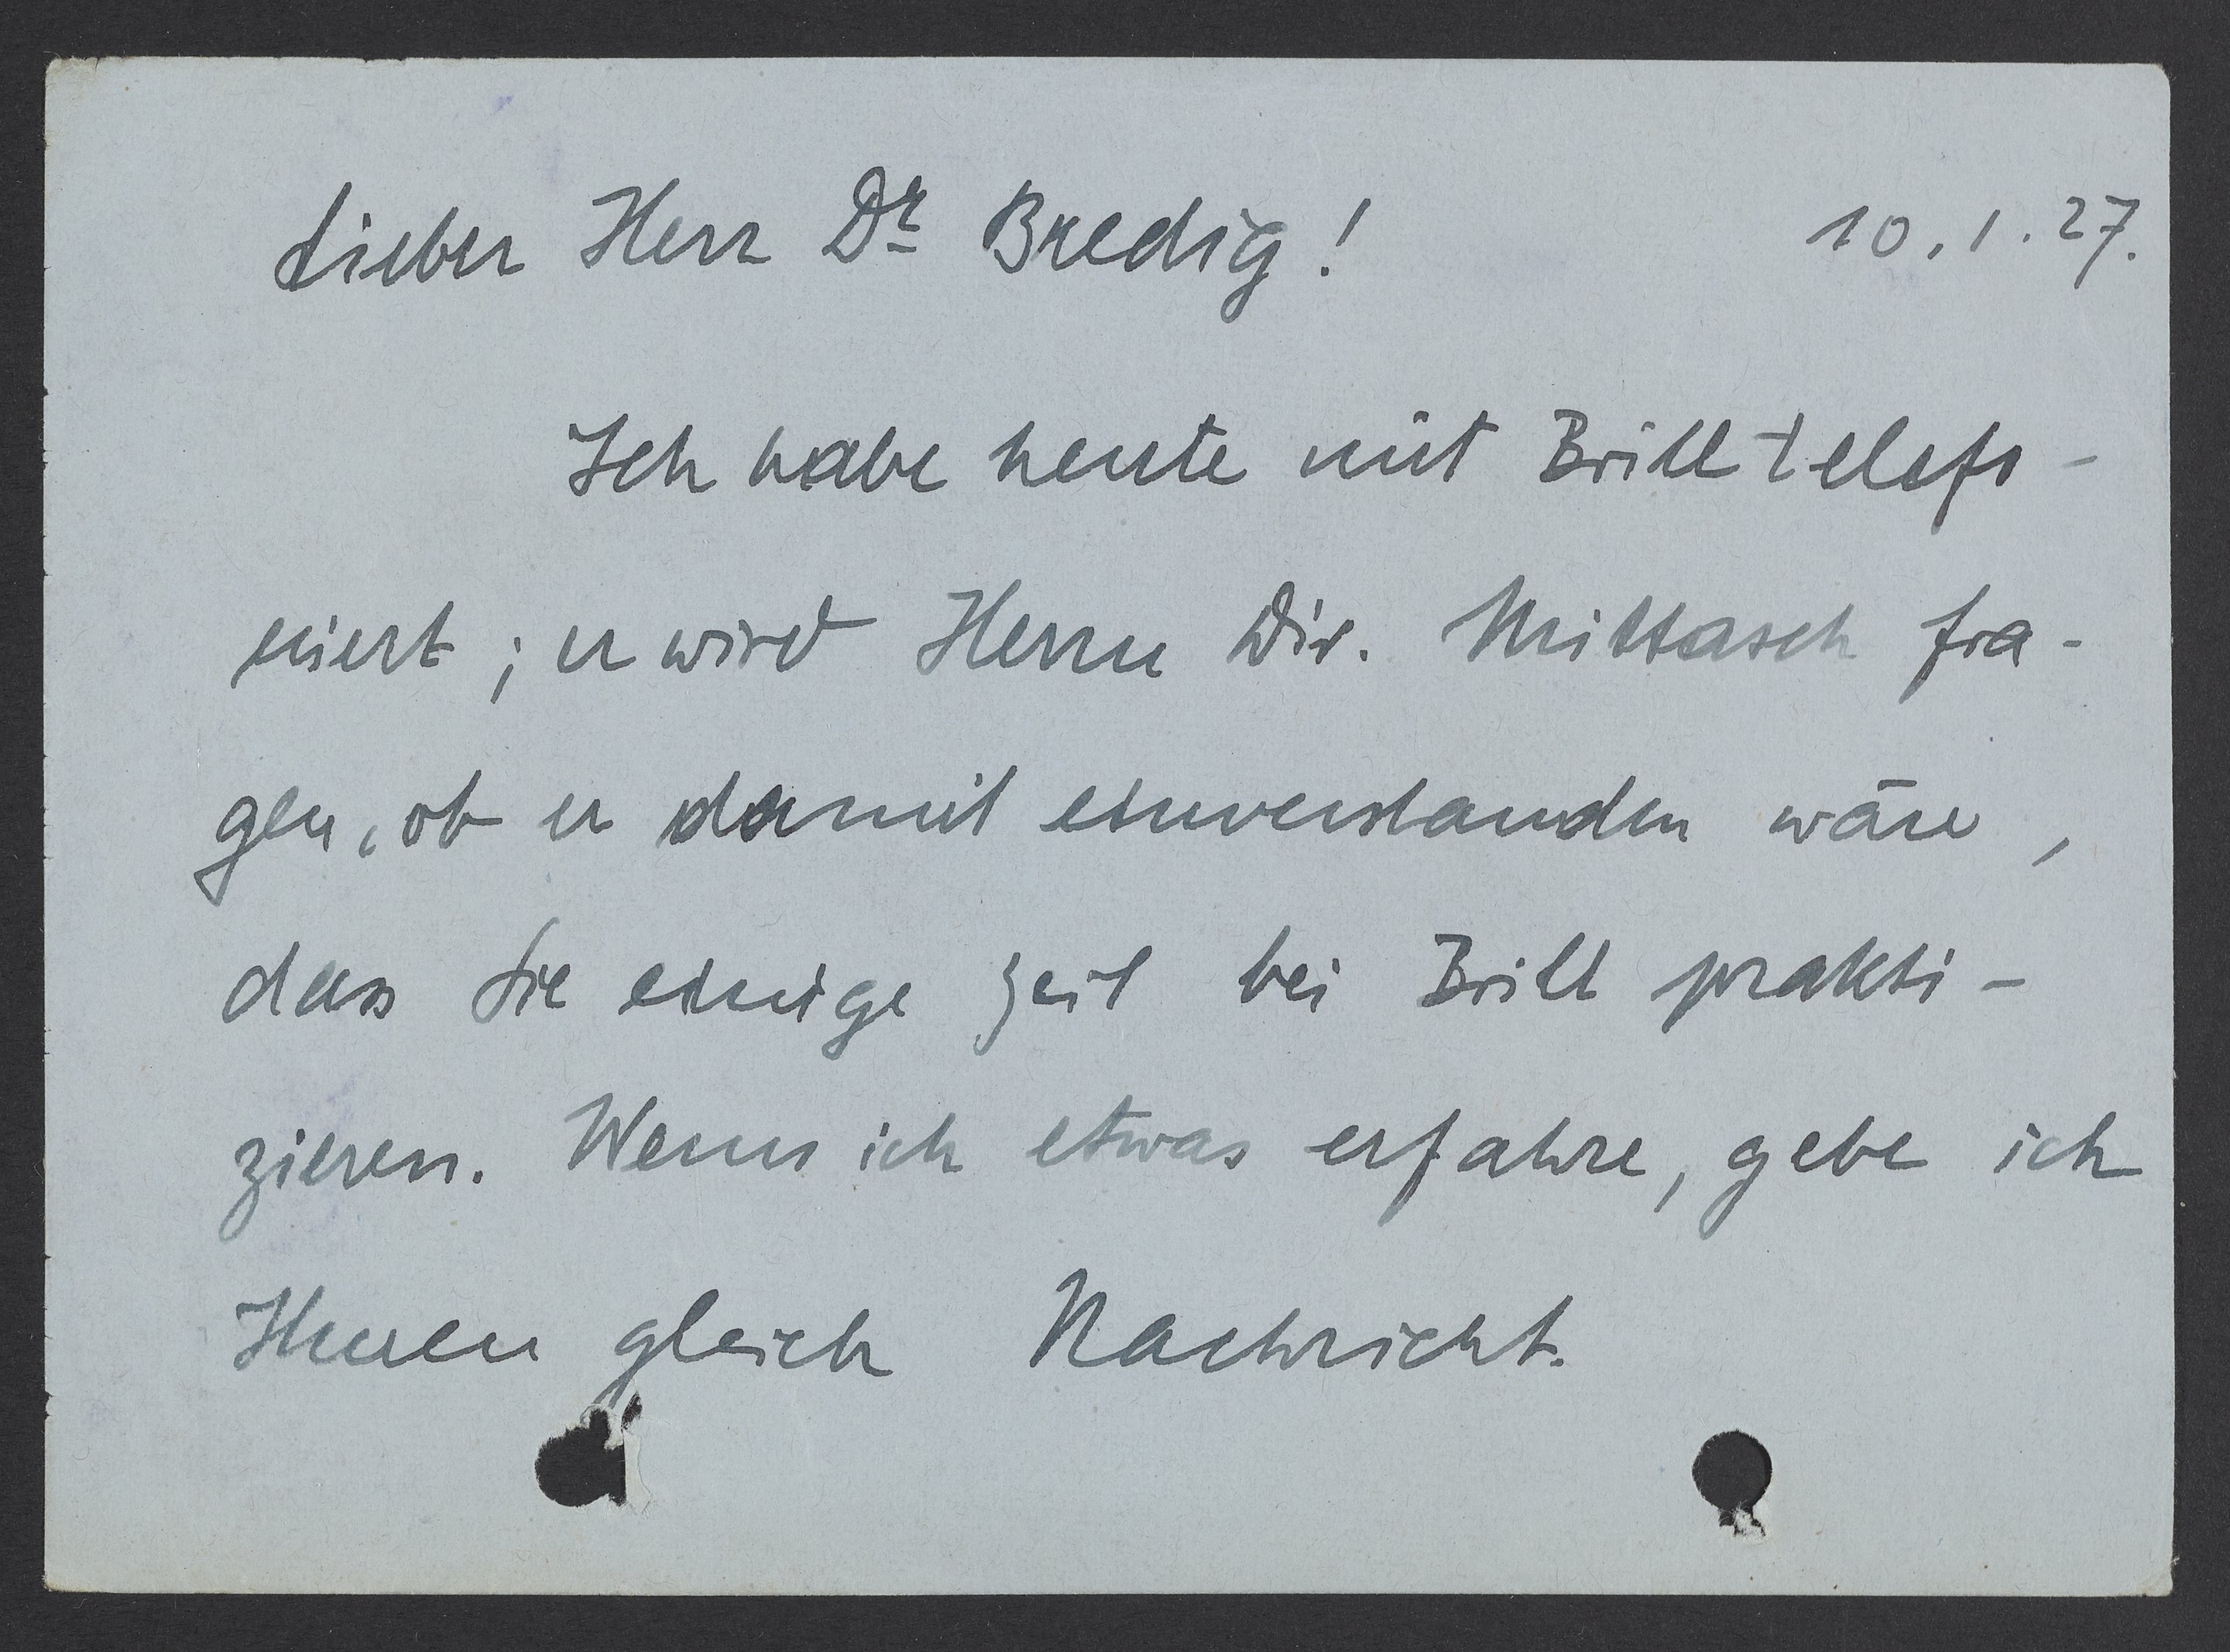 Lieber Herr Dr Bredig! 10.1.27.
Ich habe heute mit Brill telefo-
niert; er wird Herrn Dir. Mittasch fra-
gen, ob er damit einverstanden wäre,
dass Sie einige Zeit bei Brill prakti-
zieren. Wenn ich etwas erfahre, gebe ich
Ihnen gleich Nachricht.